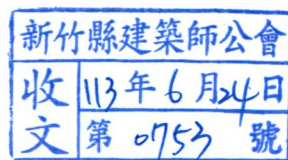 新竹縣建築師公會
收文
113年6月24日
第0753號